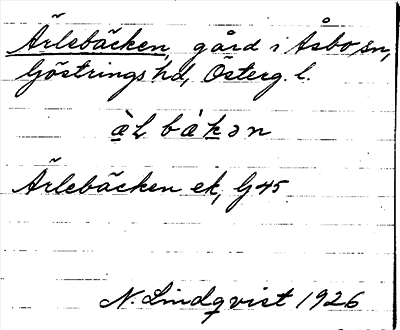 Ärlebäcken, gård i Åsbo sn,
Göstrings hd, Österg. l.
ä̀l bȧ̀kən
Ärlebäcken ek, G45
N. Lindqvist 1926